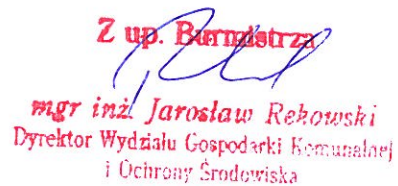 Z up. Burmistrza
mgr inż. Jarosław Rekowski
Dyrektor Wydziału Gospodarki Komunalnej
i Ochrony Środowiska